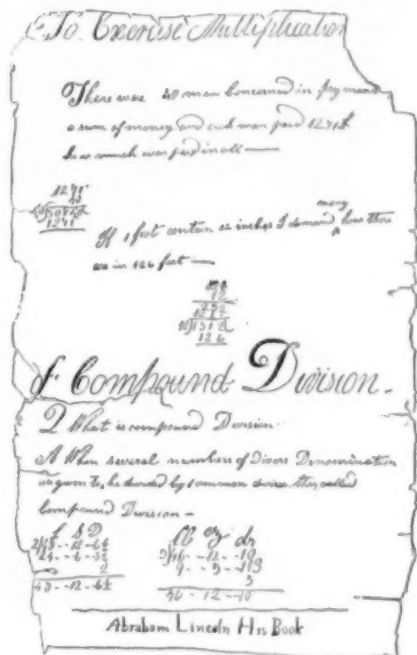 To Exercise Multiplication
There were 40 men concerned in payment
a sum of money and each man paid 1271£
how much was paid in all —
1271
40
40)50840
1271
many
If 1 foot contain 12 inches I demand how there
are in 126 feet —
126
12
252
126
12)1512
126
Of Compound Division.
Q What is compound Division
A When several numbers of Divers Denomination
are given to be divided by common
Compound Division —
£ S D
24 - - 6 - -
2
48 - - 12 - -
3)
9 - -
3
36 - - 12 - - 10
Abraham Lincoln His Book